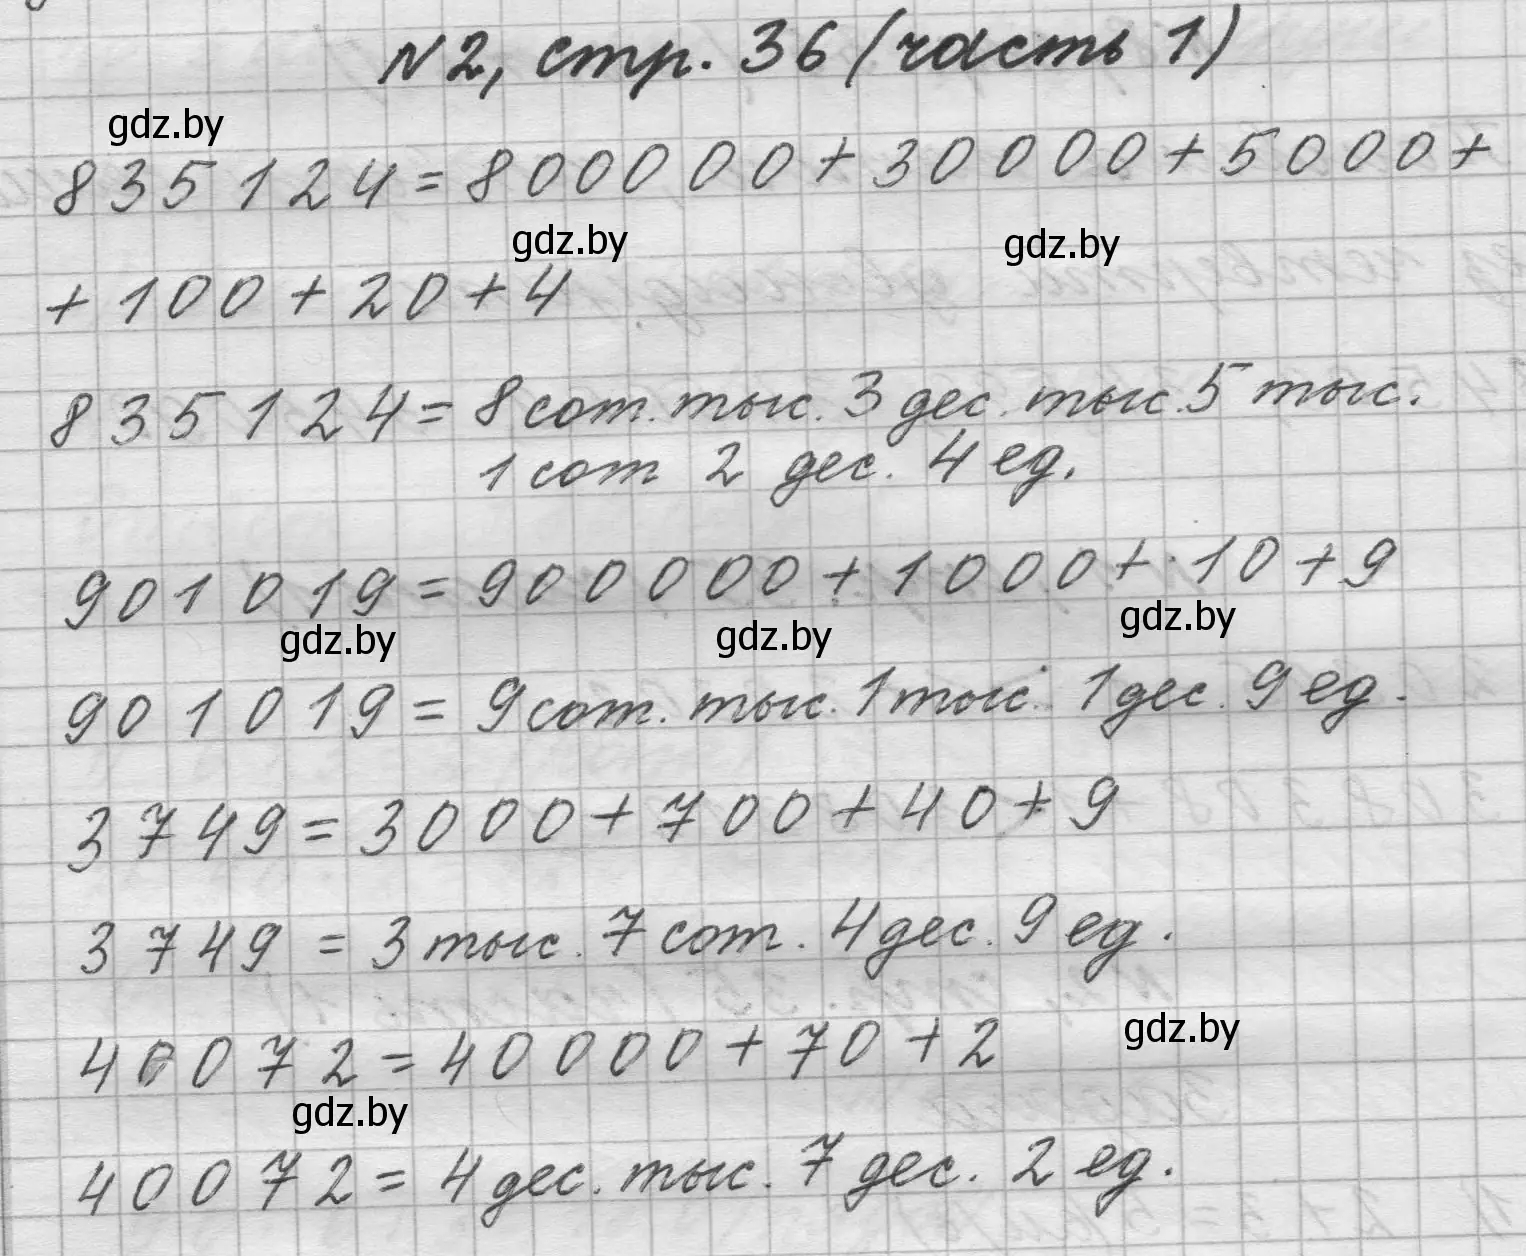 N2, стр. 36 (часть 1)
gdz.by
835124 = 800000 + 30000 + 5000 +
gdz.by gdz.by
+ 100 + 20 + 4
835124 = 8 сот. тыс. 3 дес. тыс. 5 тыс.
1 сот 2 дес. 4 ед.
901019 = 900000 + 1000 + 10 + 9
gdz.by gdz.by gdz.by
901019 = 9 сот. тыс. 1 тыс. 1 дес. 9 ед.
3749 = 3000 + 700 + 40 + 9
3749 = 3 тыс. 7 сот. 4 дес. 9 ед.
40072 = 40000 + 70 + 2
gdz.by
gdz.by
40072 = 4 дес. тыс. 7 дес. 2 ед.